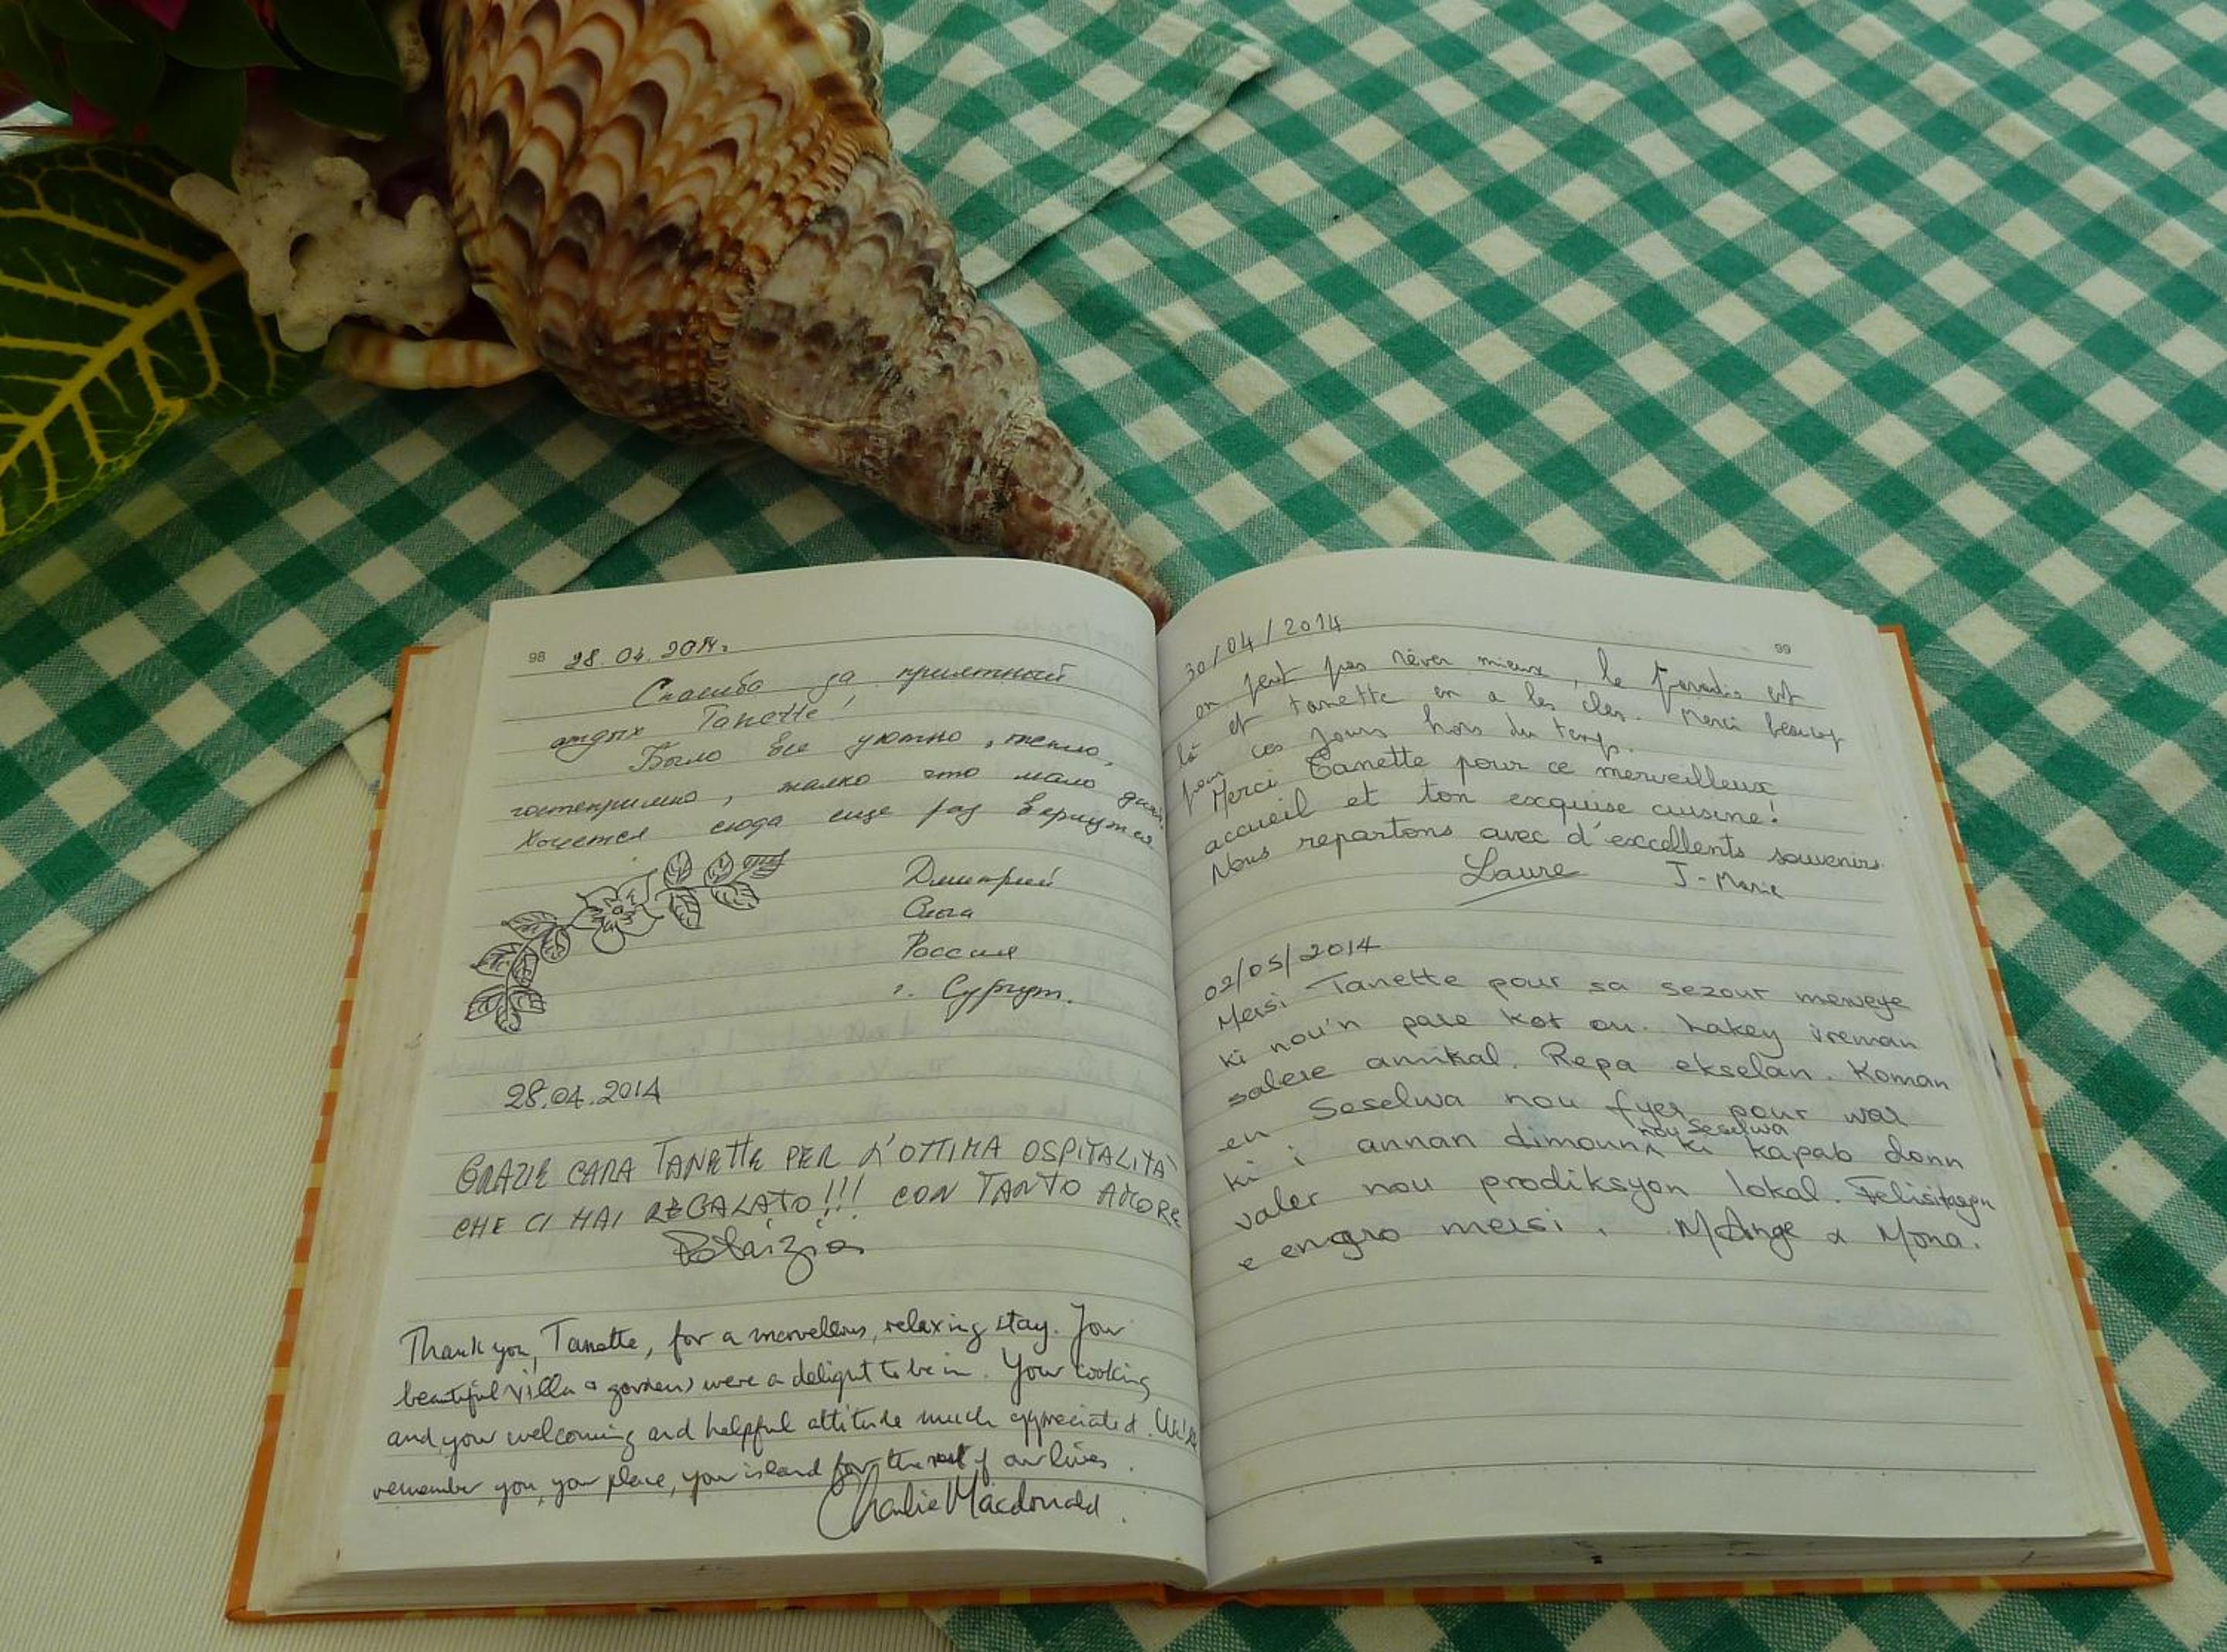 98
28.04.2014г.
Спасибо за приятный
отдых Tanette!
Было все уютно, тепло,
гостеприимно, жалко что мало дней.
Хочется сюда еще раз вернуться
Дмитрий
Ольга
Россия
г. Сургут.
28.04.2014
GRAZIE CARA TANETTE PER L'OTTIMA OSPITALITÀ
CHE CI HAI REGALATO!!! CON TANTO AMORE
Thank you, Tanette, for a marvellous, relaxing stay. Your
beautiful villa & gardens were a delight to be in. Your cooking
and your welcoming and helpful attitude much appreciated. We'll
remember you, your place, your island for the rest of our lives.
Charlie Macdonald.
99
30/04/2014
on peut pas rêver mieux, le paradis est
là et tanette en a les cles. Merci beaucoup
pour ces jours hors du temps.
Merci Tanette pour ce merveilleux
accueil et ton exquise cuisine!
Nous repartons avec d'excellents souvenirs
Laure J-Marie
02/05/2014
Mersi Tanette pour sa sezour merveye
ki nou'n pase kot ou. Lakey vreman
salere annikal. Repa ekselan. Koman
en Seselwa nou fyer pour war
ki i annan dimoun nou Seselwa ki kapab donn
valer nou prodiksyon lokal. Felisitasyon
e engro mersi. M Ange & Mona.